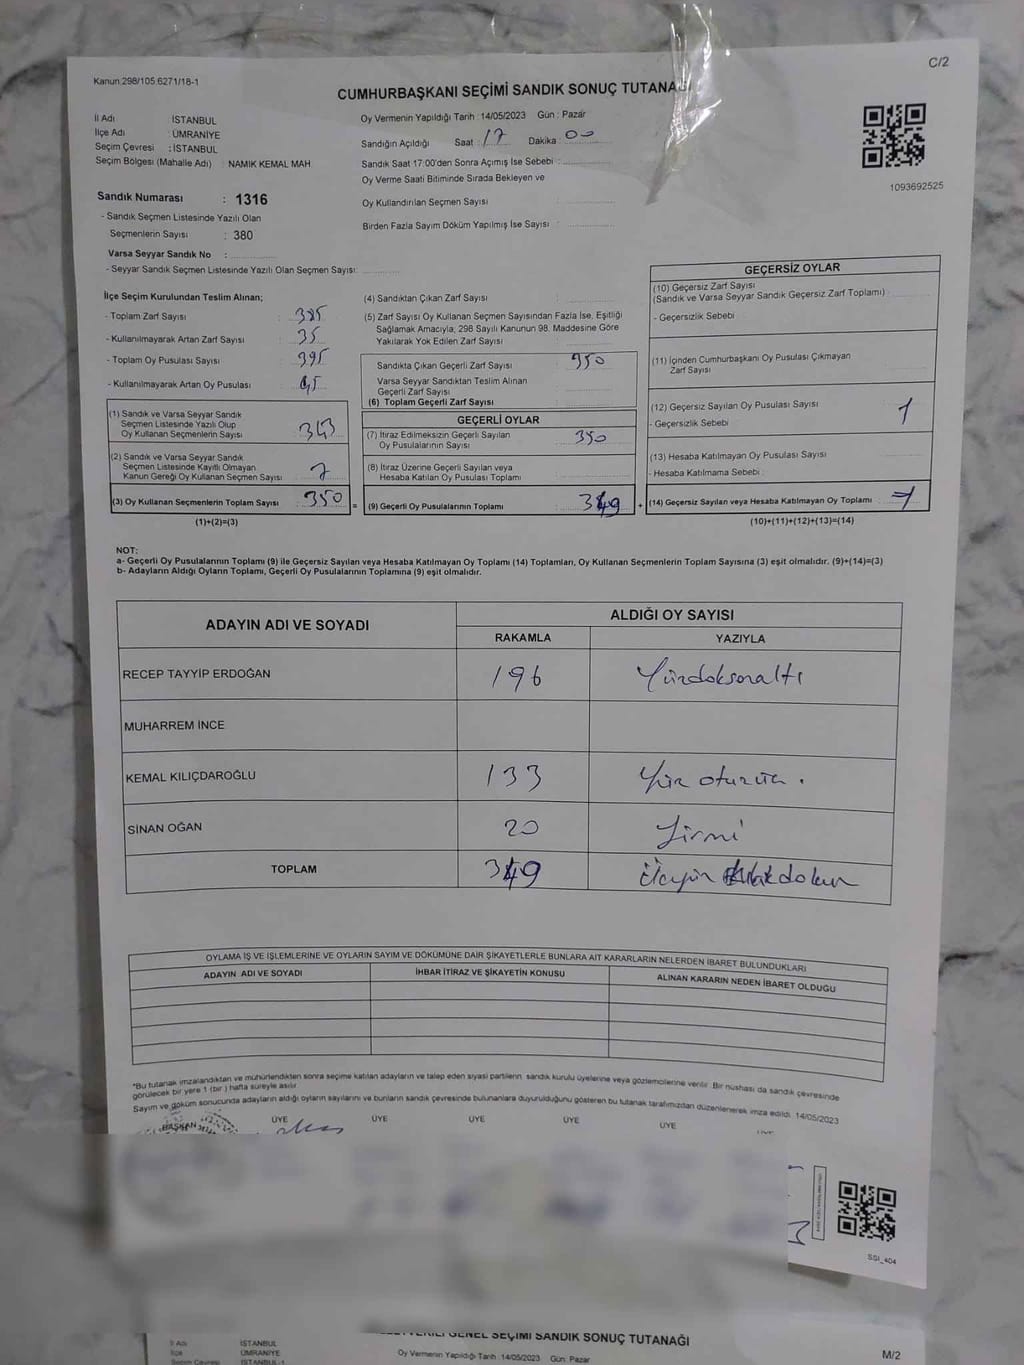 C/2
Kanun.298/105.6271/18-1
CUMHURBAŞKANI SEÇİMİ SANDIK SONUÇ TUTANAĞI
İl Adı İSTANBUL
İlçe Adı : ÜMRANİYE
Seçim Çevresi : İSTANBUL
Seçim Bölgesi (Mahalle Adı) : NAMIK KEMAL MAH
Sandık Numarası : 1316
- Sandık Seçmen Listesinde Yazılı Olan
Seçmenlerin Sayısı : 380
Varsa Seyyar Sandık No :
- Seyyar Sandık Seçmen Listesinde Yazılı Olan Seçmen Sayısı:
Oy Vermenin Yapıldığı Tarih : 14/05/2023 Gün : Pazar
Sandığın Açıldığı Saat : 17 Dakika : 00
Sandık Saat 17:00'den Sonra Açımış İse Sebebi :
Oy Verme Saati Bitiminde Sırada Bekleyen ve
Oy Kullandırılan Seçmen Sayısı :
Birden Fazla Sayım Döküm Yapılmış İse Sayısı :
1093692525
İlçe Seçim Kurulundan Teslim Alınan;
- Toplam Zarf Sayısı : 385
- Kullanılmayarak Artan Zarf Sayısı : 35
- Toplam Oy Pusulası Sayısı : 395
- Kullanılmayarak Artan Oy Pusulası : 45
(1) Sandık ve Varsa Seyyar Sandık
Seçmen Listesinde Yazılı Olup
Oy Kullanan Seçmenlerin Sayısı : 343
(2) Sandık ve Varsa Seyyar Sandık
Seçmen Listesinde Kayıtlı Olmayan
Kanun Gereği Oy Kullanan Seçmen Sayısı : 7
(3) Oy Kullanan Seçmenlerin Toplam Sayısı : 350
(1)+(2)=(3)
(4) Sandıktan Çıkan Zarf Sayısı :
(5) Zarf Sayısı Oy Kullanan Seçmen Sayısından Fazla İse, Eşitliği
Sağlamak Amacıyla, 298 Sayılı Kanunun 98. Maddesine Göre
Yakılarak Yok Edilen Zarf Sayısı :
Sandıkta Çıkan Geçerli Zarf Sayısı : 350
Varsa Seyyar Sandıktan Teslim Alınan
Geçerli Zarf Sayısı
(6) Toplam Geçerli Zarf Sayısı :
GEÇERLİ OYLAR
(7) İtiraz Edilmeksizin Geçerli Sayılan
Oy Pusulalarının Sayısı : 350
(8) İtiraz Üzerine Geçerli Sayılan veya
Hesaba Katılan Oy Pusulası Toplamı :
= (9) Geçerli Oy Pusulalarının Toplamı : 349 +
GEÇERSİZ OYLAR
(10) Geçersiz Zarf Sayısı
(Sandık ve Varsa Seyyar Sandık Geçersiz Zarf Toplamı) :
- Geçersizlik Sebebi :
(11) İçinden Cumhurbaşkanı Oy Pusulası Çıkmayan
Zarf Sayısı :
(12) Geçersiz Sayılan Oy Pusulası Sayısı : 1
- Geçersizlik Sebebi :
(13) Hesaba Katılmayan Oy Pusulası Sayısı :
- Hesaba Katılmama Sebebi :
(14) Geçersiz Sayılan veya Hesaba Katılmayan Oy Toplamı : 1
(10)+(11)+(12)+(13)=(14)
NOT:
a- Geçerli Oy Pusulalarının Toplamı (9) ile Geçersiz Sayılan veya Hesaba Katılmayan Oy Toplamı (14) Toplamları, Oy Kullanan Seçmenlerin Toplam Sayısına (3) eşit olmalıdır. (9)+(14)=(3)
b- Adayların Aldığı Oyların Toplamı, Geçerli Oy Pusulalarının Toplamına (9) eşit olmalıdır.
ADAYIN ADI VE SOYADI ALDIĞI OY SAYISI
RAKAMLA YAZIYLA
RECEP TAYYİP ERDOĞAN 196 Yüzdoksanaltı
MUHARREM İNCE
KEMAL KILIÇDAROĞLU 133 Yüz otuzüç.
SİNAN OĞAN 20 Yirmi
TOPLAM 349 üçyüz kırkdokuz
OYLAMA İŞ VE İŞLEMLERİNE VE OYLARIN SAYIM VE DÖKÜMÜNE DAİR ŞİKAYETLERLE BUNLARA AİT KARARLARIN NELERDEN İBARET BULUNDUKLARI
ADAYIN ADI VE SOYADI İHBAR İTİRAZ VE ŞİKAYETİN KONUSU ALINAN KARARIN NEDEN İBARET OLDUĞU
*Bu tutanak imzalandıktan ve mühürlendikten sonra seçime katılan adayların ve talep eden siyasi partilerin sandık kurulu üyelerine veya gözlemcilerine verilir. Bir nüshası da sandık çevresinde
görülecek bir yere 1 (bir ) hafta süreyle asılır.
Sayım ve döküm sonucunda adayların aldığı oyların sayılarını ve bunların sandık çevresinde bulunanlara duyurulduğunu gösteren bu tutanak tarafımızdan düzenlenerek imza edildi. 14/05/2023
BAŞKAN ÜYE ÜYE ÜYE ÜYE ÜYE
SGI_404
GENEL SEÇİMİ SANDIK SONUÇ TUTANAĞI
İl Adı İSTANBUL
İlçe ÜMRANİYE
Seçim Çevresi İSTANBUL-1
Oy Vermenin Yapıldığı Tarih : 14/05/2023 Gün: Pazar
M/2